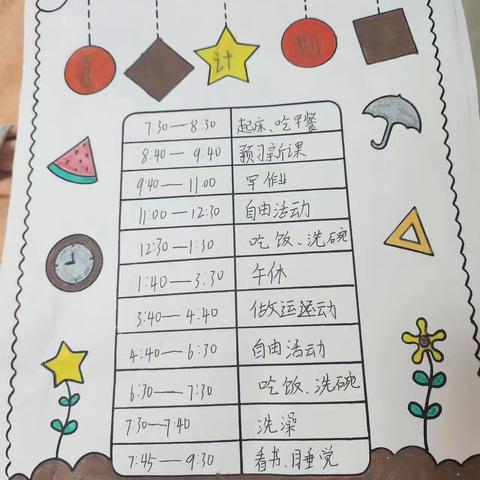 计划
7:30—8:30 起床、吃早餐
8:40—9:40 预习新课
9:40—11:00 写作业
11:00—12:30 自由活动
12:30—1:30 吃饭、洗碗
1:40—3:30 午休
3:40—4:40 做运动
4:40—6:30 自由活动
6:30—7:30 吃饭、洗碗
7:30—7:40 洗澡
7:45—9:30 看书、睡觉